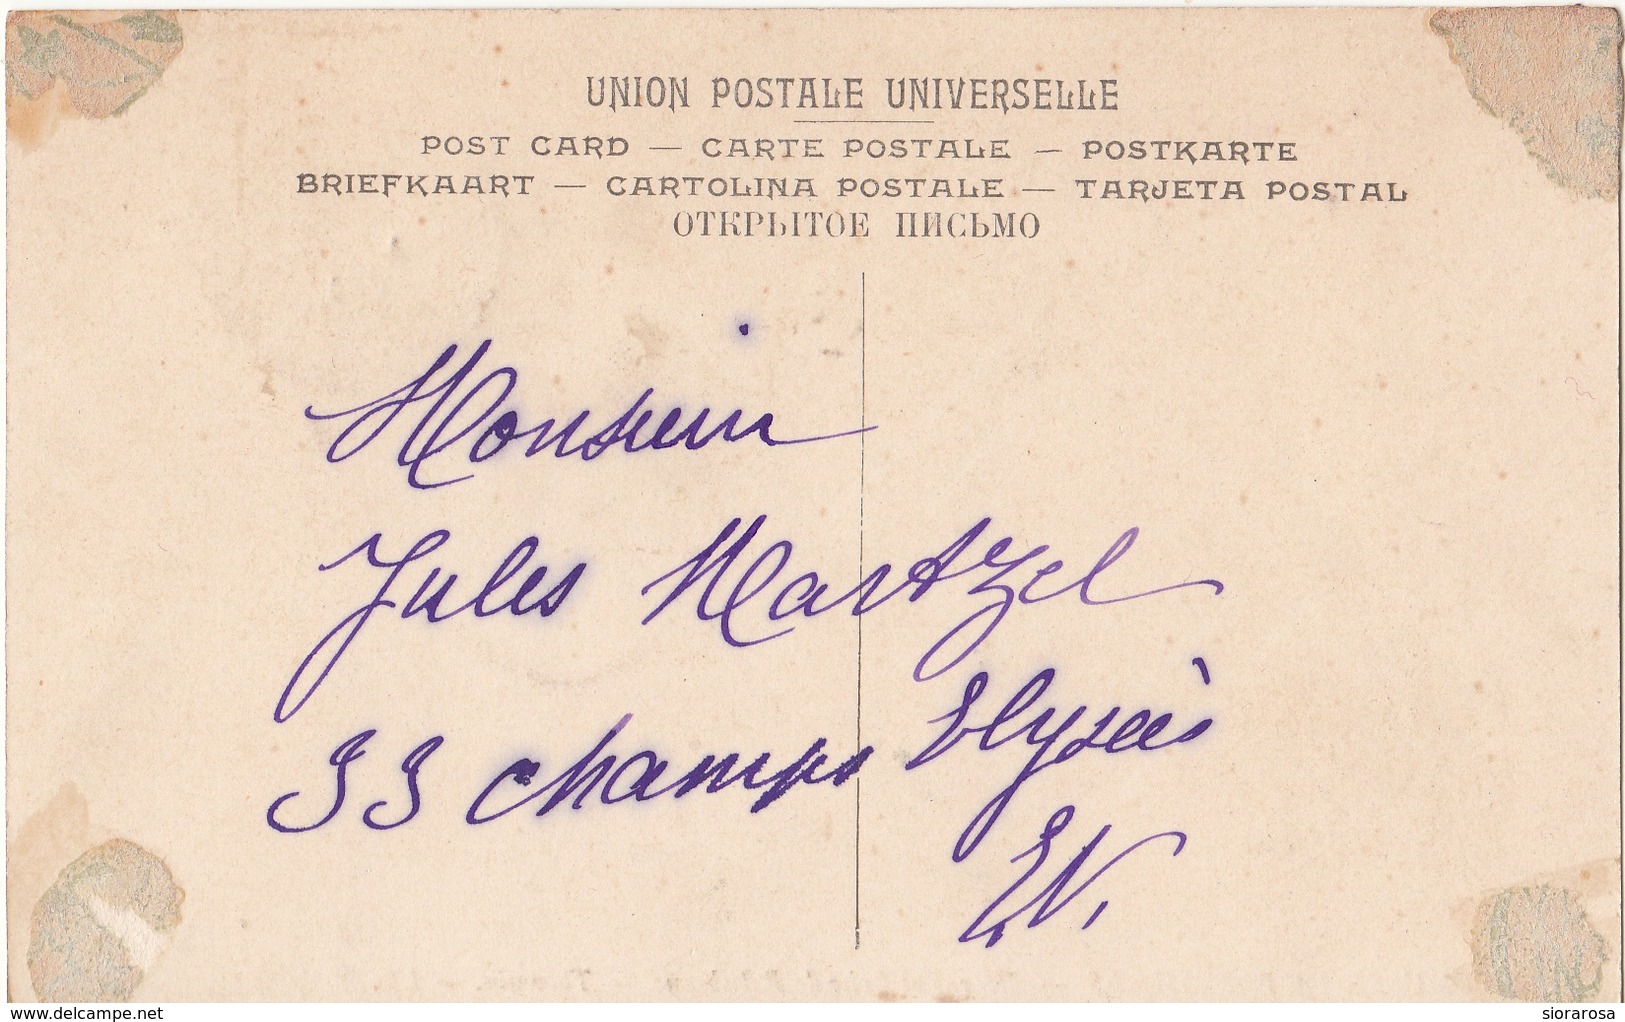 UNION POSTALE UNIVERSELLE
POST CARD — CARTE POSTALE — POSTKARTE
BRIEFKAART — CARTOLINA POSTALE — TARJETA POSTAL
ОТКРЫТОЕ ПИСЬМО
Monsieur
Jules Martzel
33 champs Elyseès
EV.
www.delcampe.net
siorarosa